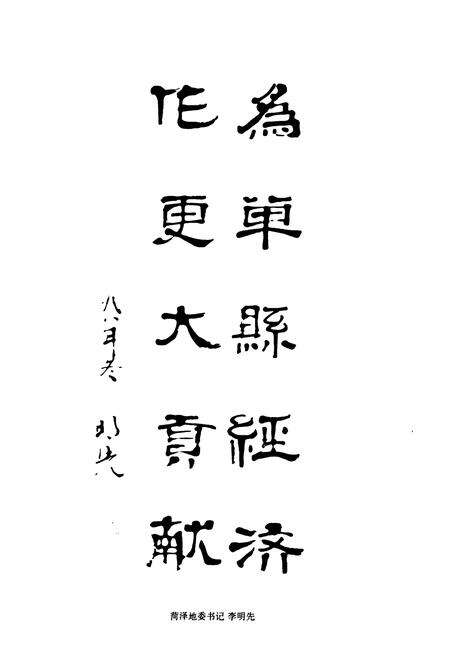 為单縣經济
作更大貢献
八八年春 明先
菏泽地委书记 李明先